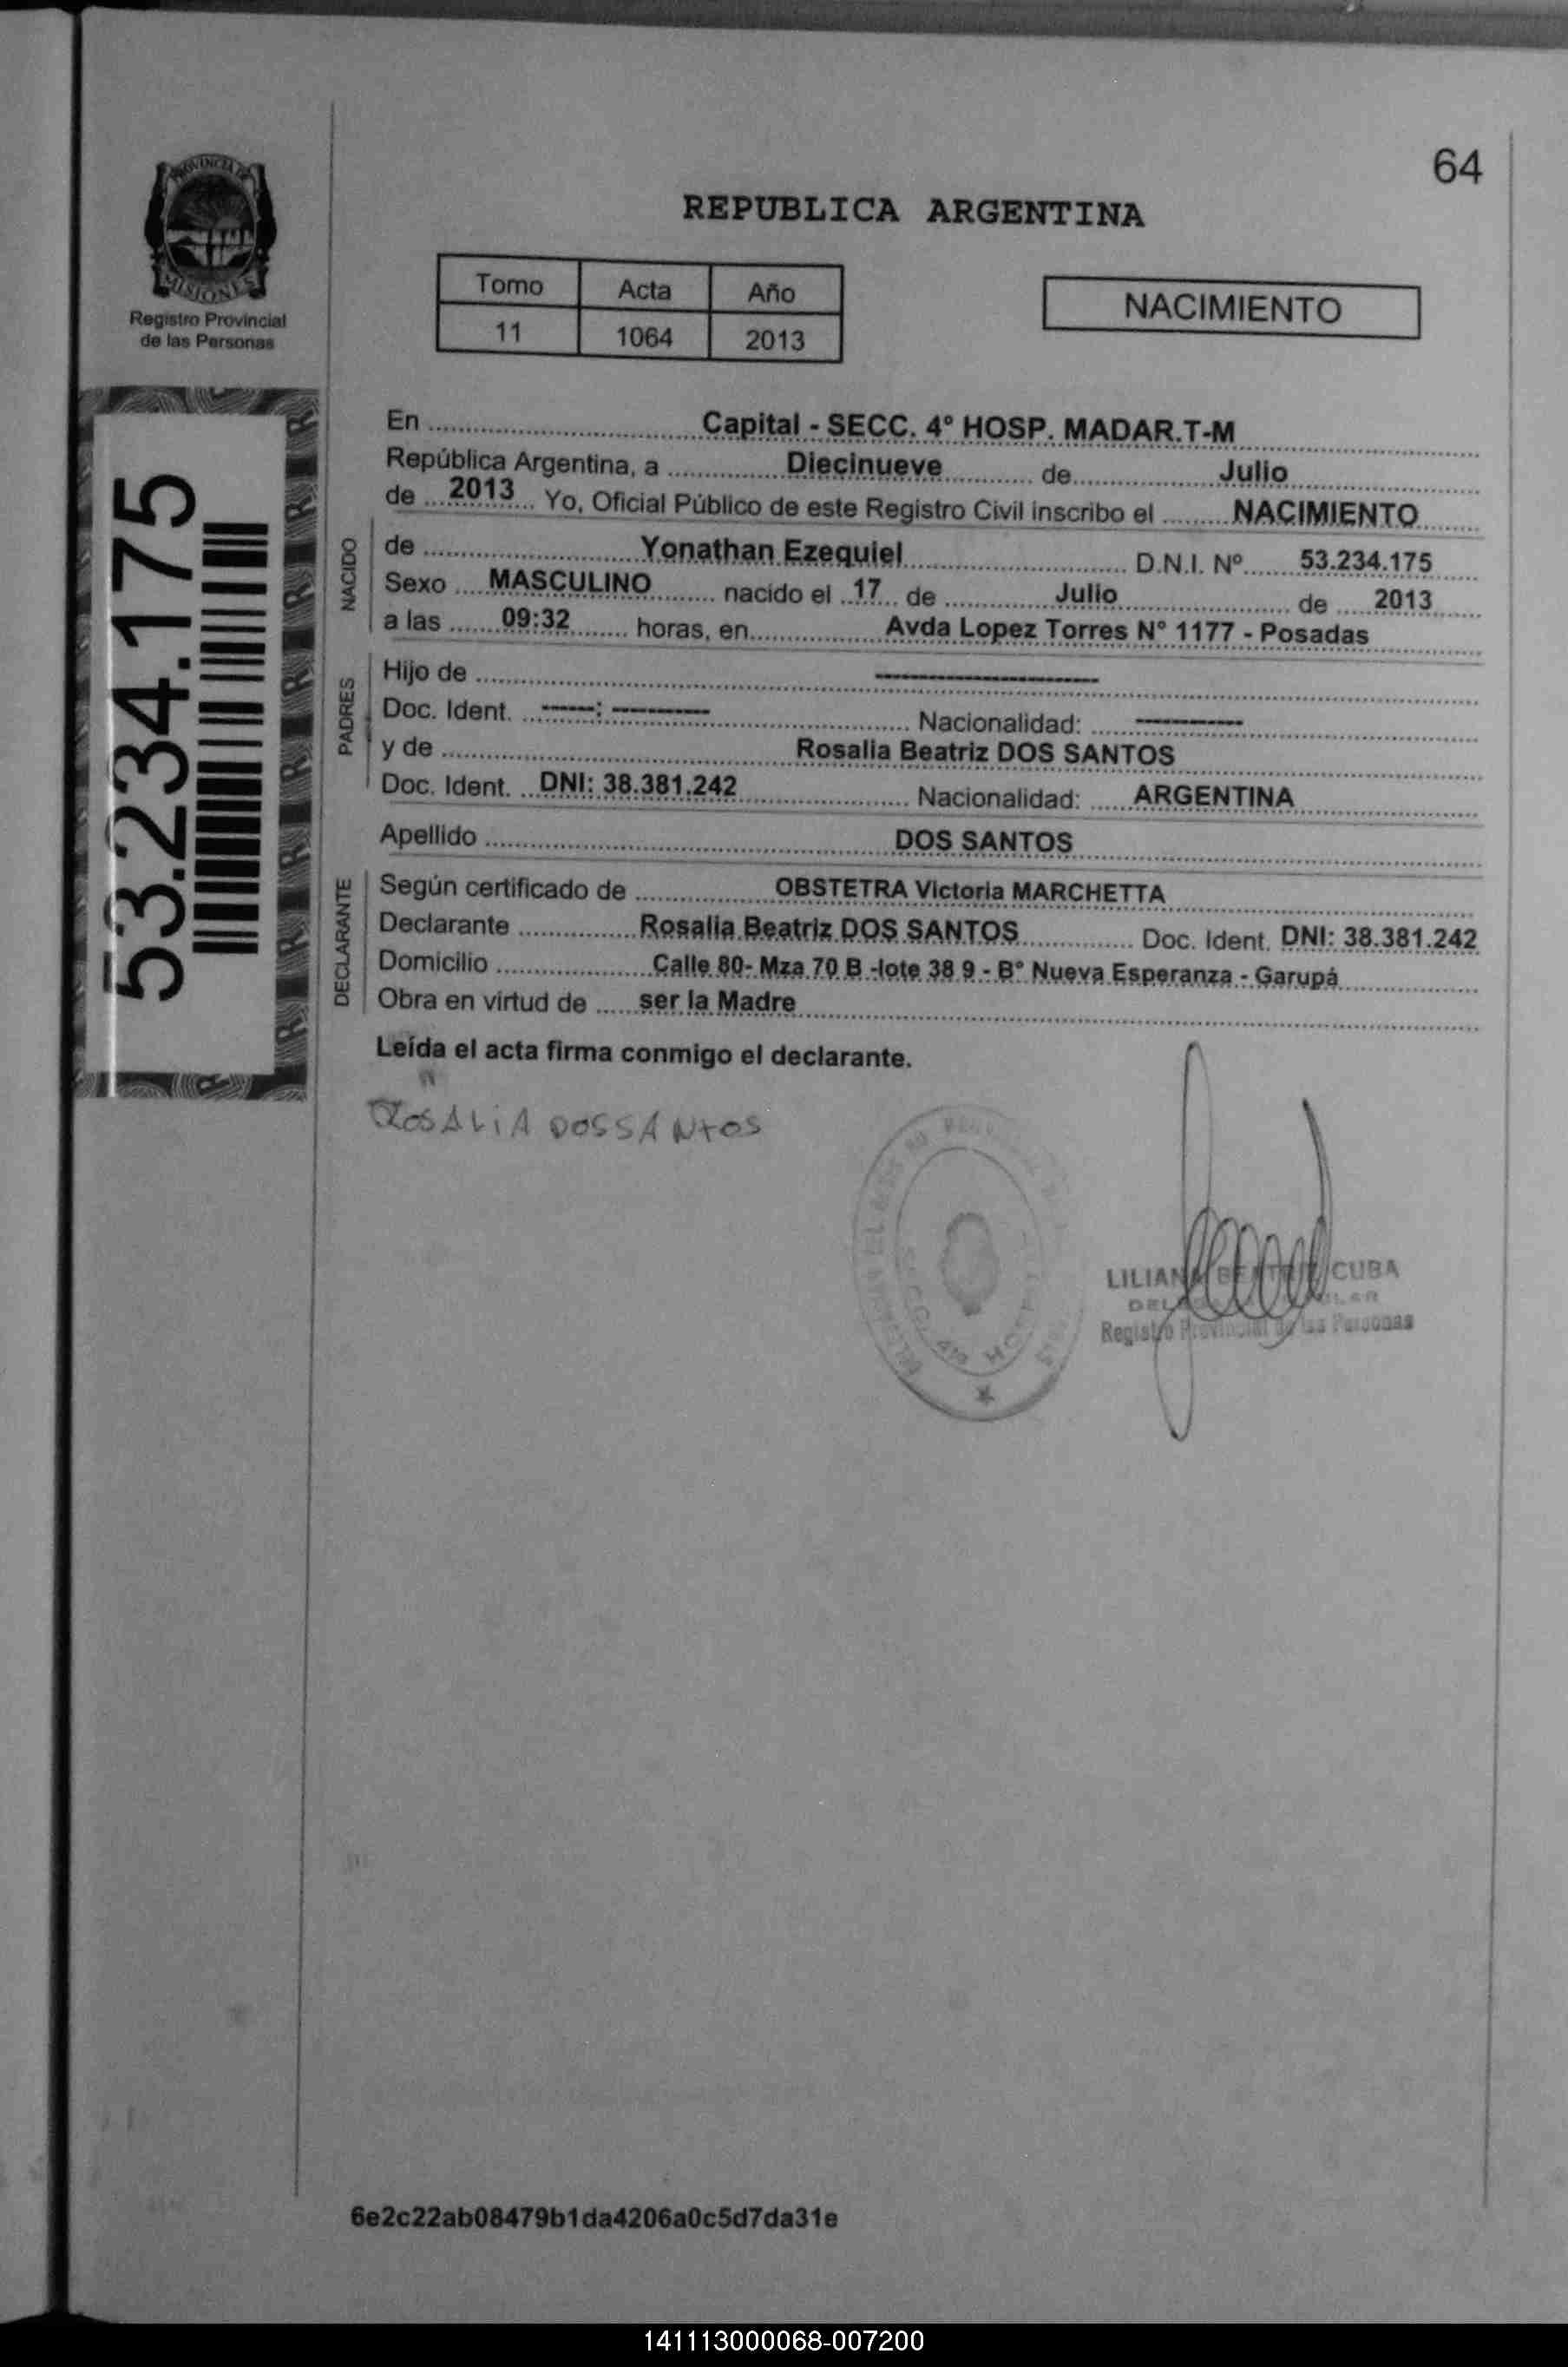 64
PROVINCIA DE
MISIONES
Registro Provincial
de las Personas
REPUBLICA ARGENTINA
Tomo Acta Año
11 1064 2013
NACIMIENTO
53.234.175
En Capital - SECC. 4° HOSP. MADAR.T-M
República Argentina, a Diecinueve de Julio
de 2013 Yo, Oficial Público de este Registro Civil inscribo el NACIMIENTO
NACIDO
de Yonathan Ezequiel D.N.I. Nº 53.234.175
Sexo MASCULINO nacido el 17 de Julio de 2013
a las 09:32 horas, en Avda Lopez Torres N° 1177 - Posadas
PADRES
Hijo de --------------------
Doc. Ident. -----: --------- Nacionalidad: ----------
y de Rosalia Beatriz DOS SANTOS
Doc. Ident. DNI: 38.381.242 Nacionalidad: ARGENTINA
Apellido DOS SANTOS
DECLARANTE
Según certificado de OBSTETRA Victoria MARCHETTA
Declarante Rosalia Beatriz DOS SANTOS Doc. Ident. DNI: 38.381.242
Domicilio Calle 80- Mza 70 B -lote 38 9 - B° Nueva Esperanza - Garupá
Obra en virtud de ser la Madre
Leída el acta firma conmigo el declarante.
ROSALiA DOSSANtOS
LILIANA BEATRIZ CUBA
Registro Provincial de las Personas
6e2c22ab08479b1da4206a0c5d7da31e
141113000068-007200